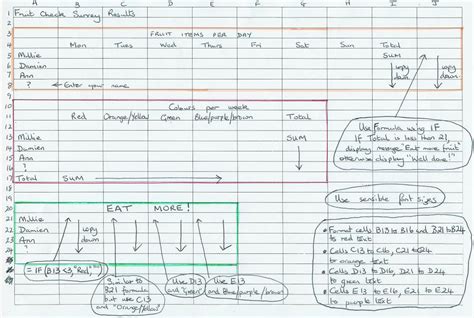 A B C D E F G H I J
1 Fruit Check Survey Results
2
3 FRUIT ITEMS PER DAY
4 Mon Tues Wed Thurs Fri Sat Sun Total
5 Millie SUM
6 Damien copy down copy down
7 Ann
8 ? ← Enter your name
9
10 Colours per week
11 Red Orange/Yellow Green Blue/purple/brown Total
12
13 Millie SUM
14 Damien
15 Ann
16 ?
17 Total SUM
Use Formula using IF
If Total is less than 21,
display message "Eat more fruit"
otherwise display "Well done!"
Use sensible font sizes
20 EAT MORE!
21 Millie
22 Damien copy down
23 Ann
24 ?
=IF(B13<3,"Red","")
Similar to
B21 formula
but use C13
and "Orange/Yellow"
Use D13
and "Green"
Use E13
and Blue/purple/brown
• Format cells B13 to B16 and B21 to B24
to red text
• Cells C13 to C16, C21 to C24
to orange text
• Cells D13 to D16, D21 to D24
to green text
• Cells E13 to E16, E21 to E24
to purple text